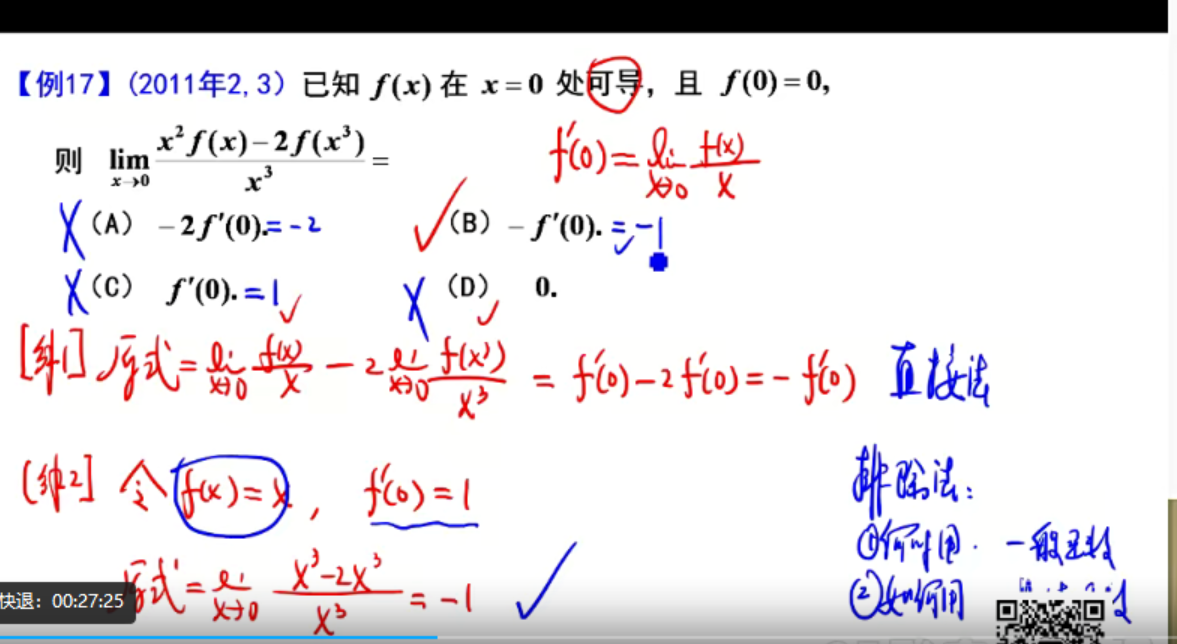 【例17】(2011年2,3) 已知 f(x) 在 x=0 处可导，且 f(0)=0,
则 lim x→0 (x²f(x)−2f(x³))/x³ =
f'(0)=lim x→0 f(x)/x
(A) −2f'(0).=-2
(B) −f'(0).=-1
(C) f'(0).=1
(D) 0.
[解1] 原式=lim x→0 f(x)/x − 2 lim x→0 f(x³)/x³ = f'(0)−2f'(0)=−f'(0) 直接法
[解2] 令 f(x)=x, f'(0)=1
排除法:
①何时用. 一般函数
原式=lim x→0 (x³−2x³)/x³ = −1
②如何用
快退：00:27:25